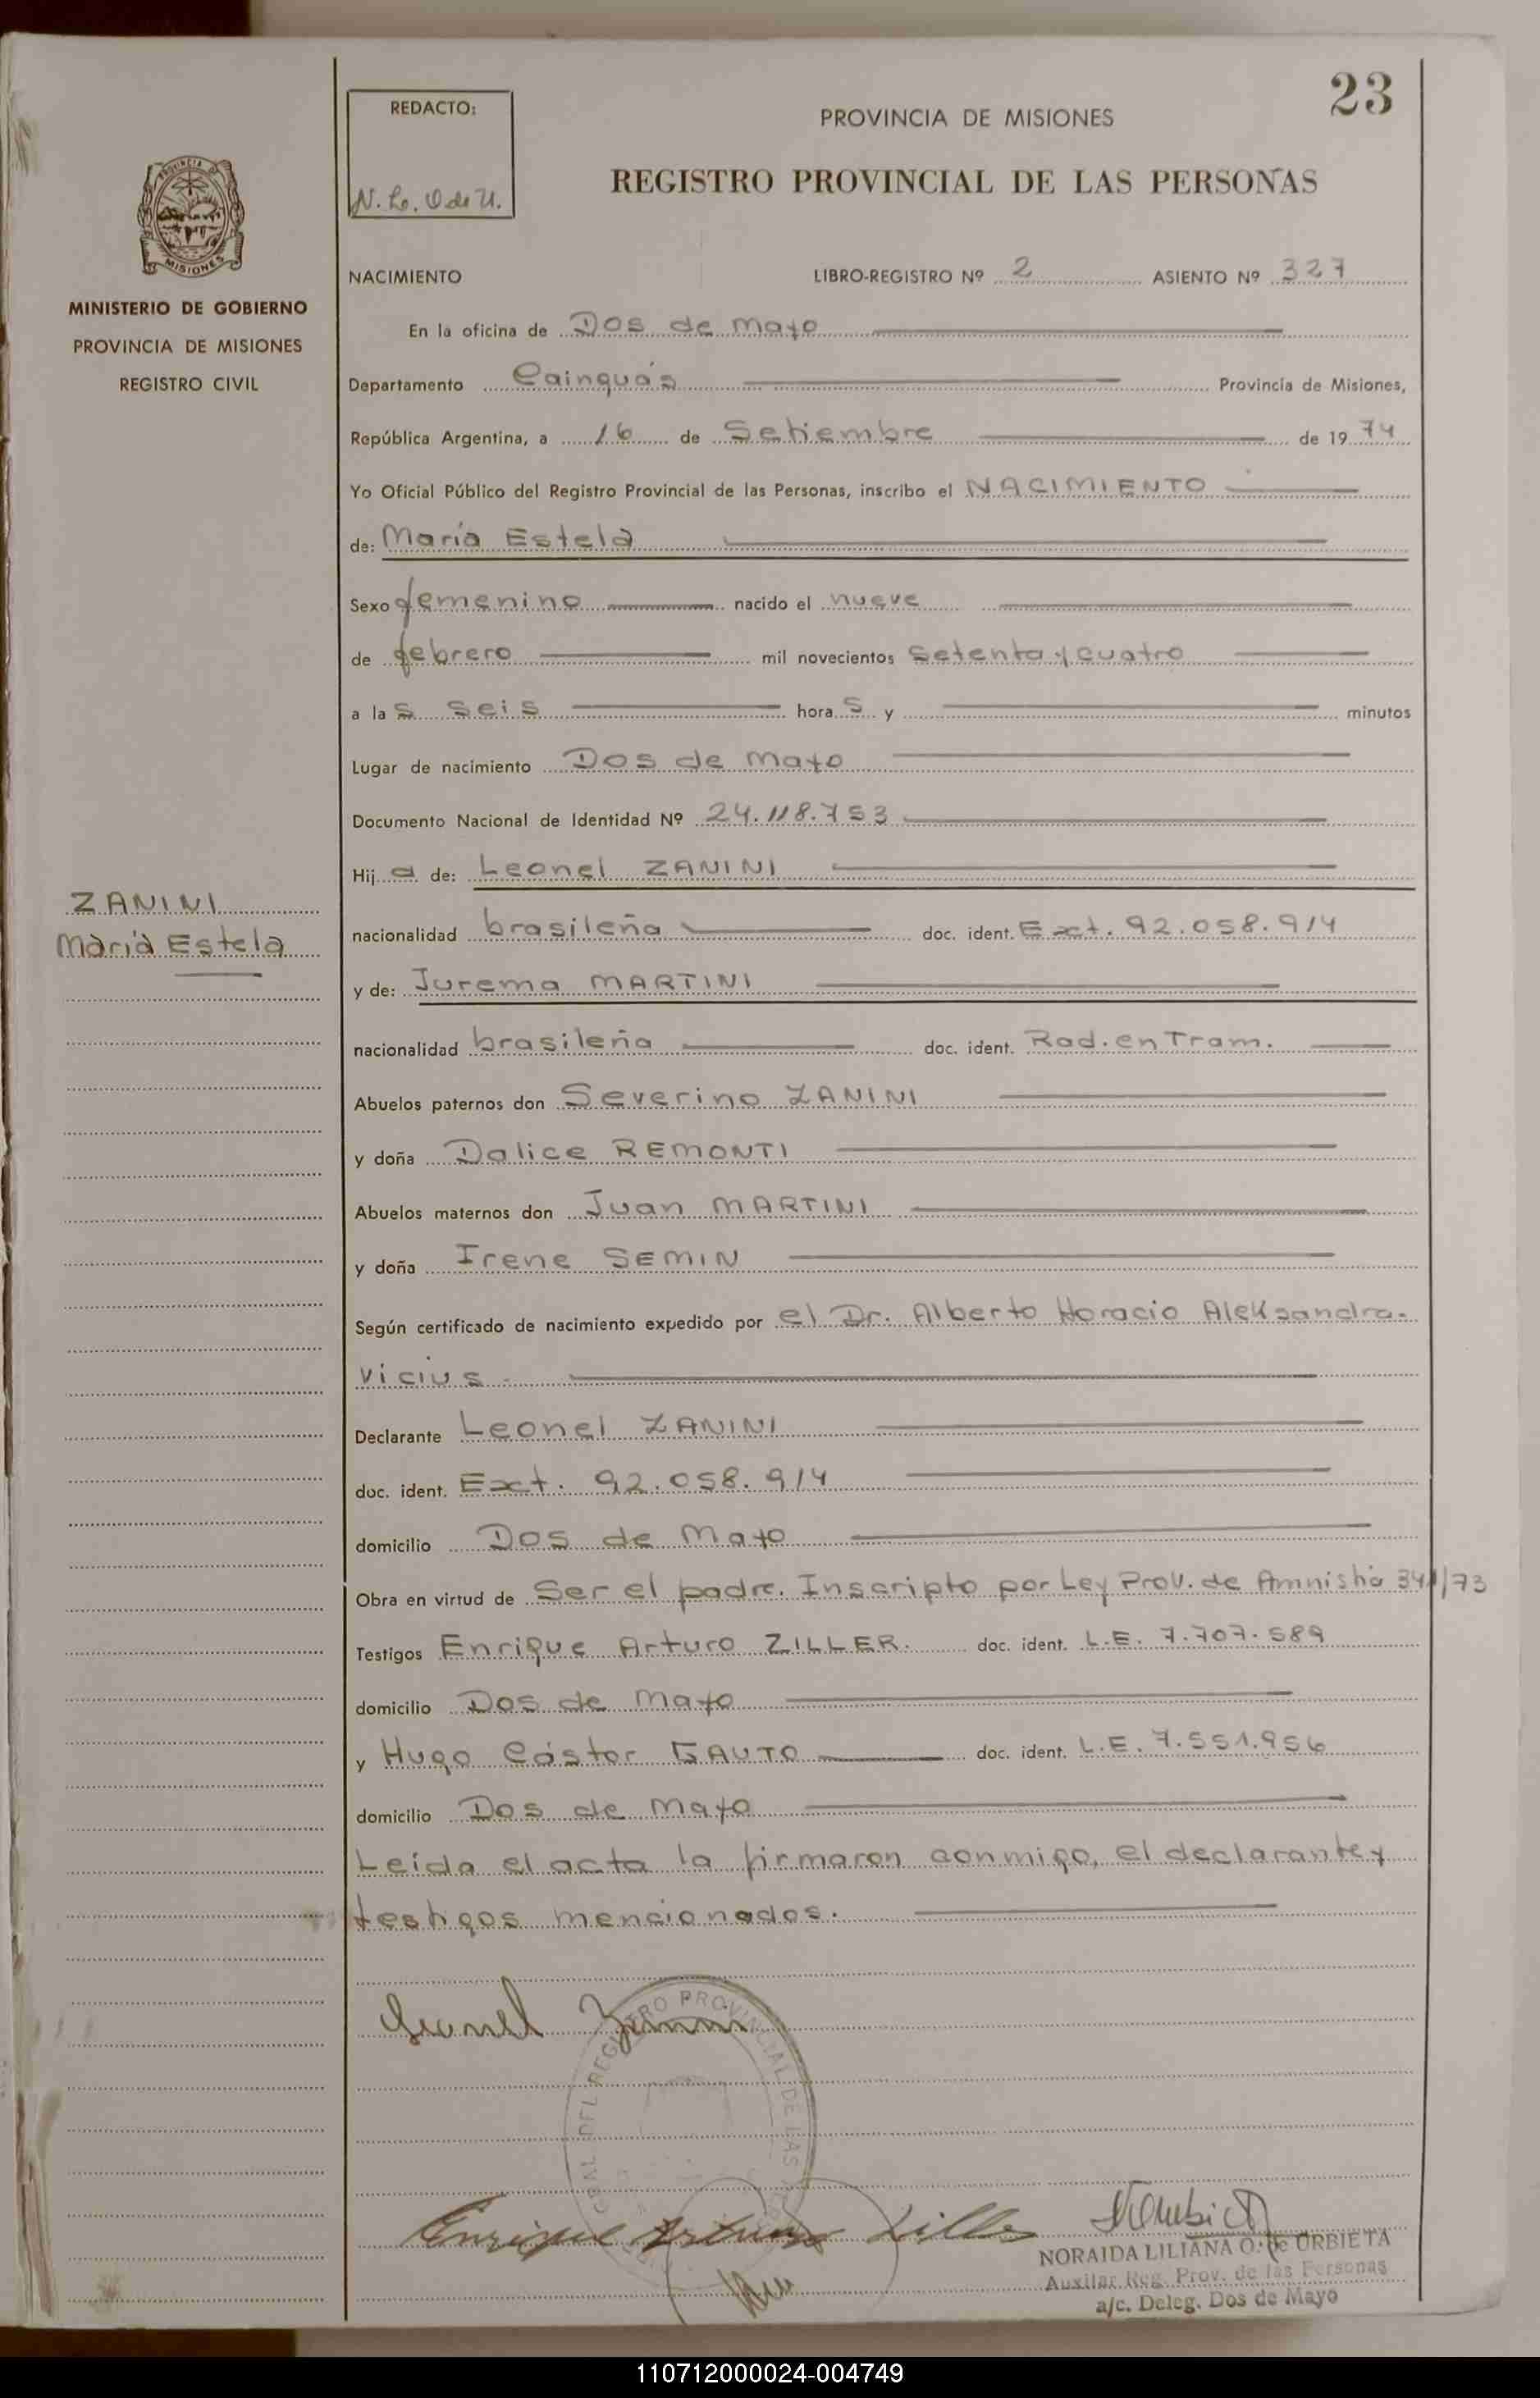 23
REDACTO:
N. L. O de U.
PROVINCIA DE MISIONES
REGISTRO PROVINCIAL DE LAS PERSONAS
PROVINCIA DE
MISIONES
MINISTERIO DE GOBIERNO
PROVINCIA DE MISIONES
REGISTRO CIVIL
NACIMIENTO LIBRO-REGISTRO Nº 2 ASIENTO Nº 327
En la oficina de Dos de Mayo
Departamento Cainguás Provincia de Misiones,
República Argentina, a 16 de Setiembre de 1974
Yo Oficial Público del Registro Provincial de las Personas, inscribo el NACIMIENTO
de: María Estela
Sexo femenino nacido el nueve
de febrero mil novecientos setenta y cuatro
a las seis horas y minutos
Lugar de nacimiento Dos de Mayo
Documento Nacional de Identidad Nº 24.118.753
Hija de: Leonel ZANINI
ZANINI
María Estela
nacionalidad brasileña doc. ident. Ext. 92.058.914
y de: Jurema MARTINI
nacionalidad brasileña doc. ident. Rad. en Tram.
Abuelos paternos don Severino ZANINI
y doña Dalice REMONTI
Abuelos maternos don Juan MARTINI
y doña Irene SEMIN
Según certificado de nacimiento expedido por el Dr. Alberto Horacio Aleksandra-
vicius -
Declarante Leonel ZANINI
doc. ident. Ext. 92.058.914
domicilio Dos de Mayo
Obra en virtud de Ser el padre. Inscripto por Ley Prov. de Amnistía 341/73
Testigos Enrique Arturo ZILLER. doc. ident. L.E. 7.707.589
domicilio Dos de Mayo
y Hugo Cástor GAUTO doc. ident. L.E. 7.551.956
domicilio Dos de Mayo
Leída el acta la firmaron conmigo, el declarante y
testigos mencionados.
Leonel Zanini
REGISTRO PROVINCIAL DE LAS
Enrique Arturo Ziller
NORAIDA LILIANA O. de URBIETA
Auxiliar Reg. Prov. de las Personas
a/c. Deleg. Dos de Mayo
110712000024-004749